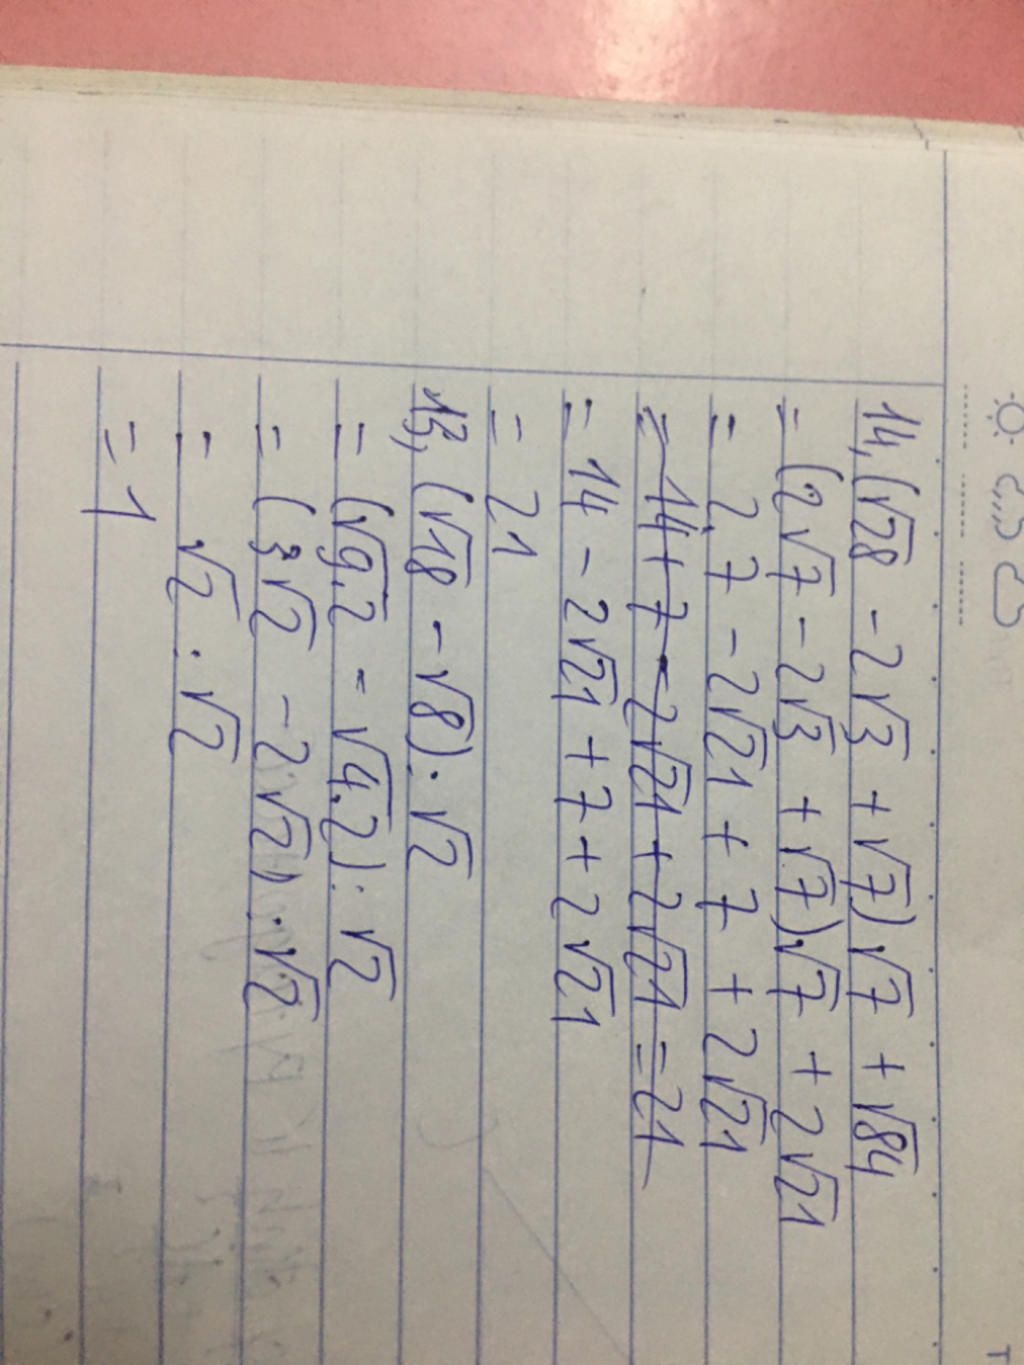 14, (√28 - 2√3 + √7).√7 + √84
= (2√7 - 2√3 + √7).√7 + 2√21
= 2.7 - 2√21 + 7 + 2√21
= 14 + 7 - 2√21 + 2√21 = 21
= 14 - 2√21 + 7 + 2√21
= 21
13, (√18 - √8) : √2
= (√9.2 - √4.2) : √2
= (3√2 - 2√2) : √2
= √2 : √2
= 1